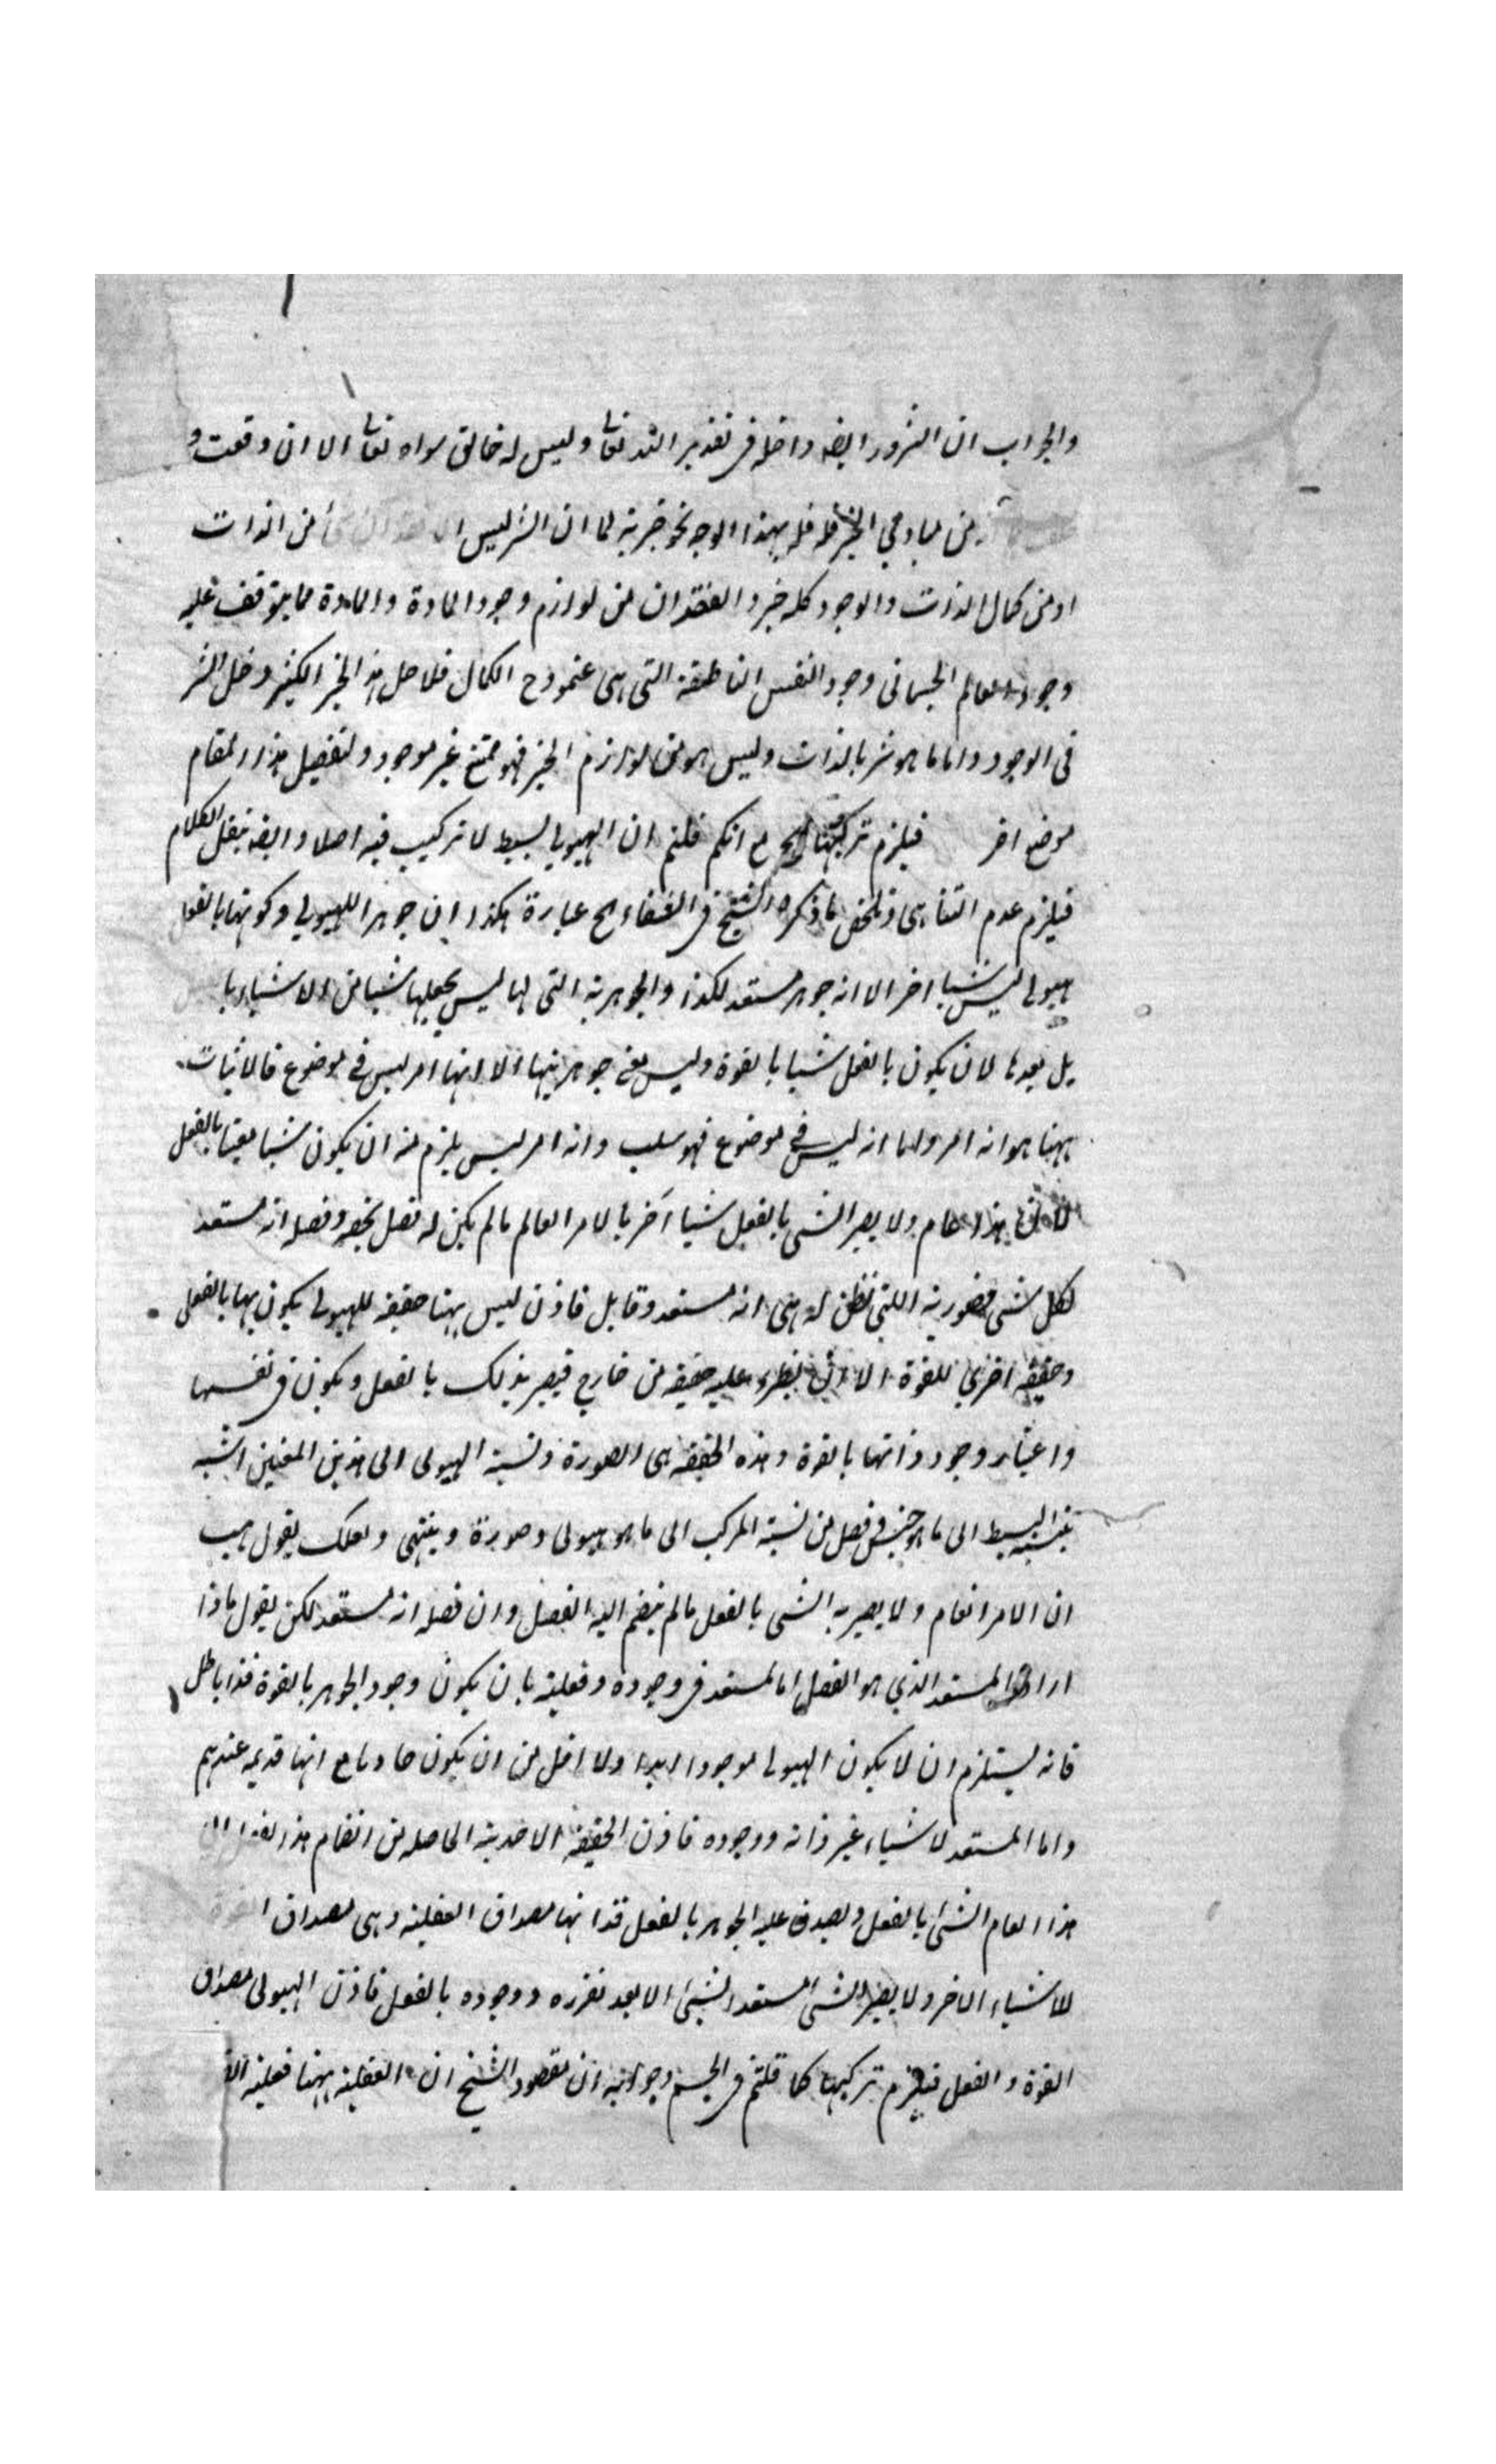 والجواب ان الشرور ايضه داخله فى تقدير الله تعا وليس له خالق سواه تعا الا ان وقعت و
من مبادى الخير فله بهذا الوجه نحو خيرية لما ان الشر ليس من الذات
او من كمال الذات والوجود كله خير والفقدان من لوازم وجود المادة والمادة مما يتوقف عليه
وجود العالم الجسمانى وجود النفس الناطقة التى هى عنموذج الكمال فلاجل هذ الخير الكثير دخل الشر
فى الوجود واما ما هو شر بالذات وليس هو من لوازم الخير فهو ممتنع غير موجود ولتفصيل هذا المقام
موضع اخر فيلزم تركيبها مع انكم قلتم ان الهيولى بسيط لا تركيب فيه اصلا وايضه ينقل الكلام
فيلزم عدم التناهى وتلخص ما ذكره الشيخ فى الشفاء عبارة هكذا ان جوهر الهيولى وكونها بالفعل
هيولى ليس شيا اخر الا انه جوهر مستعد لكذا والجوهرية التى لها ليس يجعلها شيا من الاشياء با
بل يعدها لان يكون بالفعل شيا بالقوة وليس معنى جوهريتها الا انها امر ليس فى موضوع فالاثبات
ههنا هو انه امر واما انه ليس فى موضوع فهو سلب وانه امر ليس يلزم منه ان يكون شيا معينا بالفعل
لان هذا عام ولا يصير الشى بالفعل شيا آخر بالامر العالم مالم يكن له فصل يخصه وفصله انه مستعد
لكل شى فصورته اللتى تظن له هى انه مستعد وقابل فاذن ليس ههنا حقيقه للهيولى يكون بها بالفعل
وحقيقه اخرى للقوة الا ان يطرء عليه حقيقه من خارج فيصير بذلك بالفعل ويكون فى نفسها
واعتبار وجود ذاتها بالقوة وهذه الحقيقه هى الصورة ونسبة الهيولى الى هذين المعنين اشبه
بنسبة البسيط الى ما هو جنس فى فصل من نسبة المركب الى ما هو هيولى وصورة وينتهى ولعلك يقول هب
ان الامر العام ولا يصير به الشى بالفعل مالم ينضم اليه الفصل وان فصله انه مستعد لكن يقول ماذا
اراد المستعد الذي هو الفصل اما لمستعد فى وجوده وفعليته بان يكون وجود الجوهر بالقوة فذا باطل
فانه يستلزم ان لا يكون الهيولى موجودا ابدا ولا اقل من ان يكون حادثا مع انها قديمه عندهم
واما المستعد لاشياء غير ذاته ووجوده فاذن الحقيقة الاحدية الحاصله من انضمام هذا
هذا العام الشى بالفعل ويصدق عليه الجوهر بالفعل فذاتها مصداق الفعلية وهى مصداق
للاشياء الاخر ولا يصير الشى المستعد لشى الا بعد تقرره ووجوده بالفعل فاذن الهيولى مصداق
القوة والفعل فيلزم تركيبها كما قلتم فى الجسم وجوابه ان مقصود الشيخ ان الفعلية ههنا فعلية